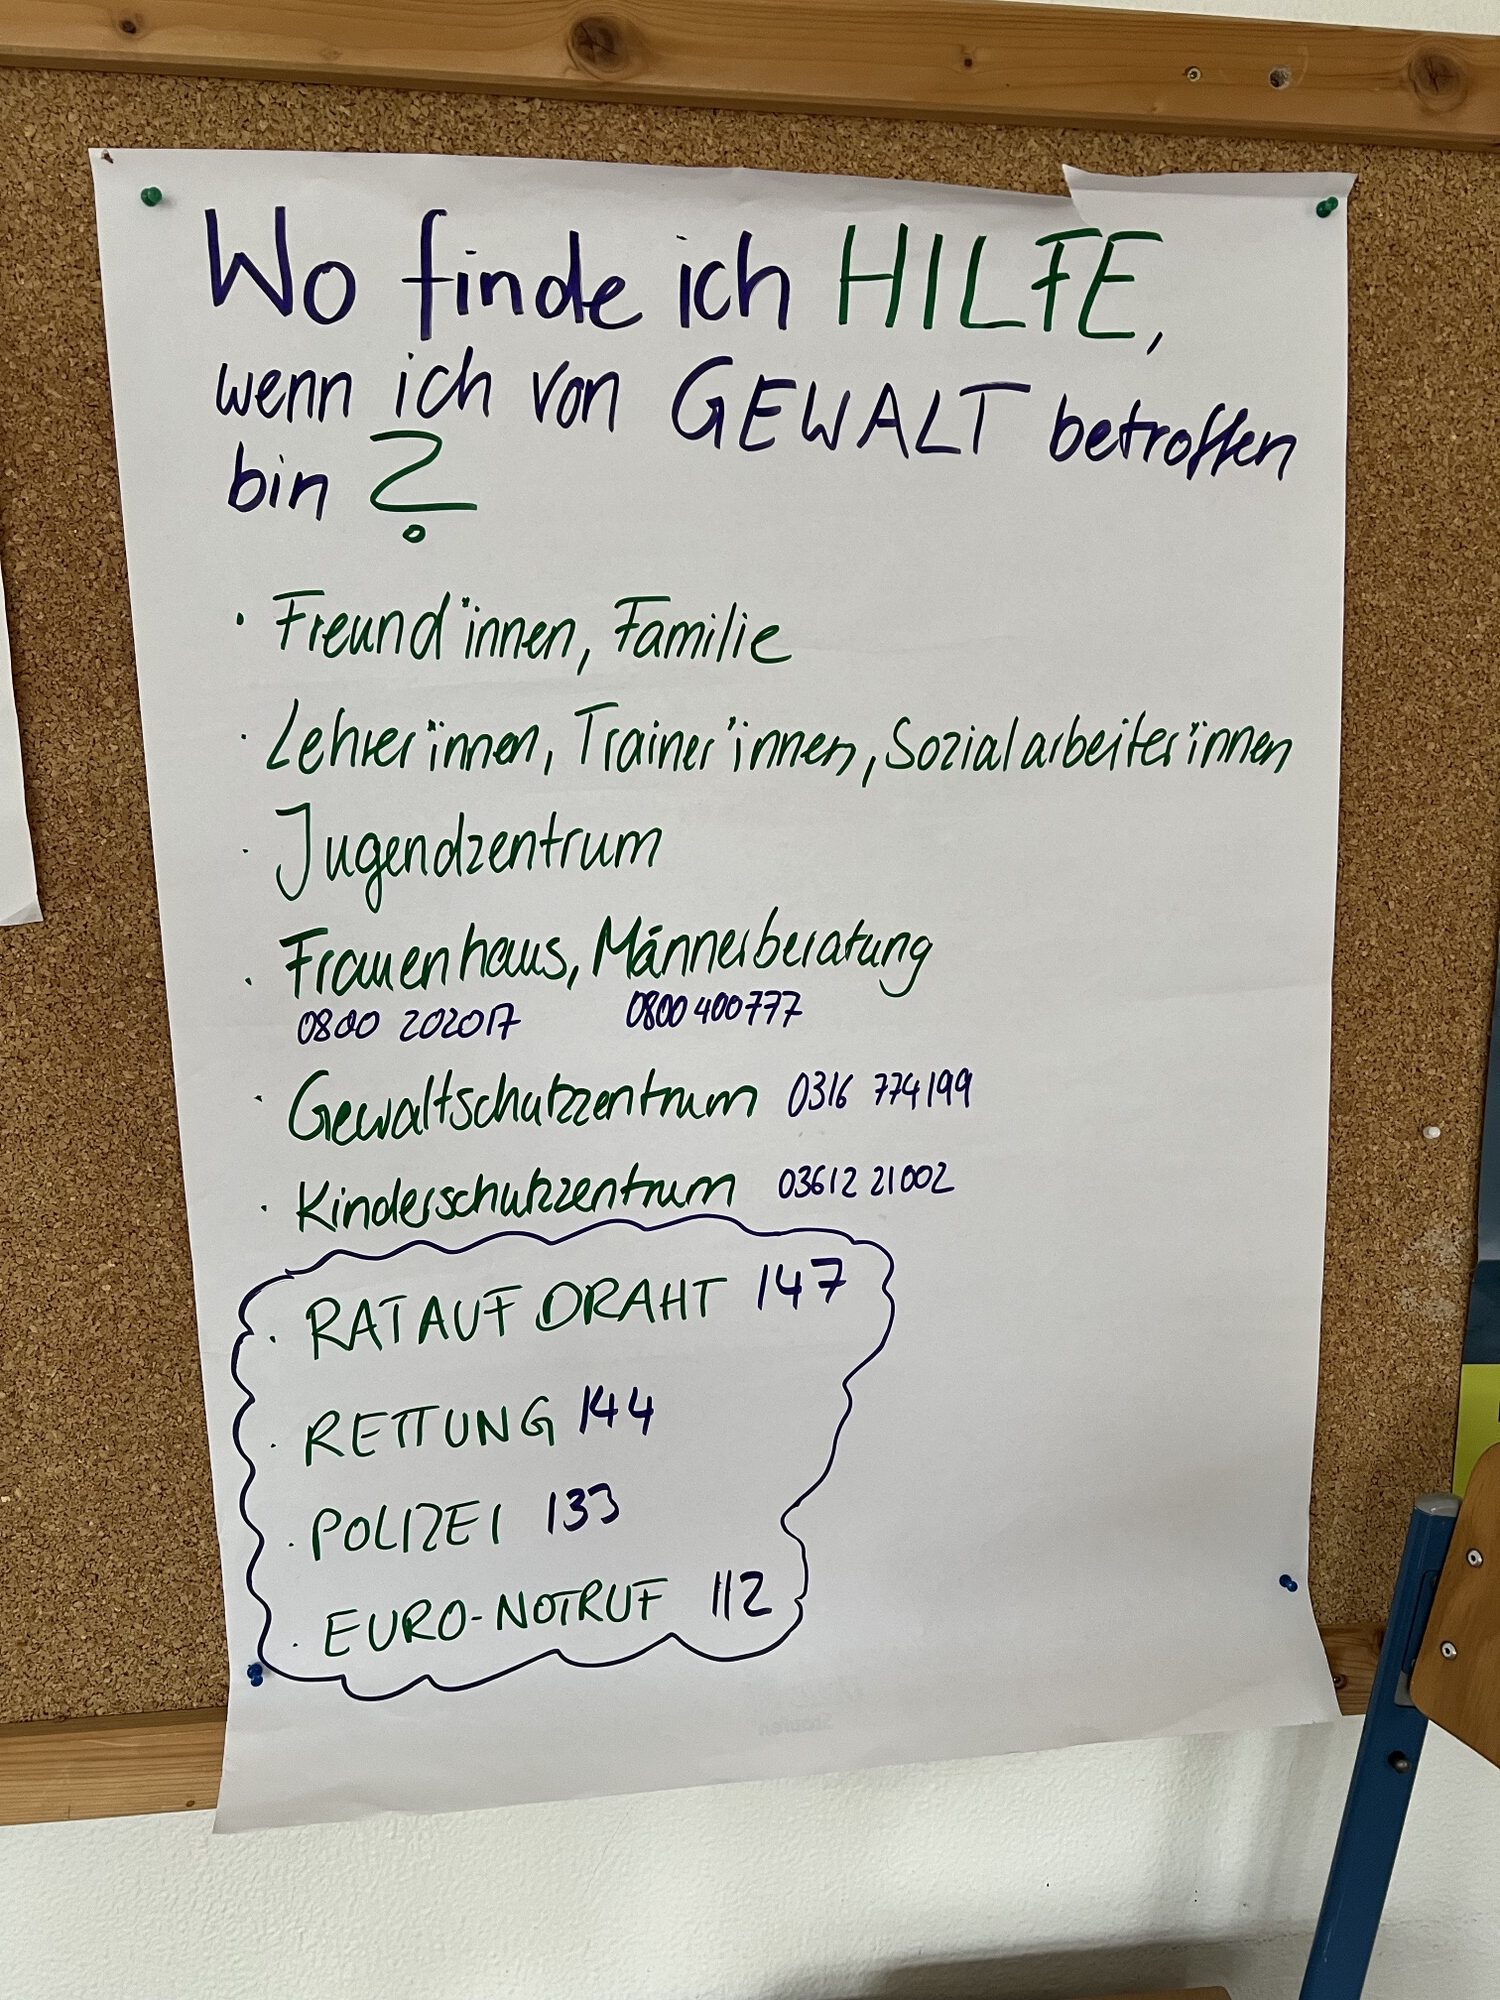 Wo finde ich HILFE,
wenn ich von GEWALT betroffen
bin ?
· Freund*innen, Familie
· Lehrer*innen, Trainer*innen, Sozialarbeiter*innen
· Jugendzentrum
· Frauenhaus, Männerberatung
0800 202017 0800 400777
· Gewaltschutzzentrum 0316 774199
· Kinderschutzzentrum 03612 21002
· RAT AUF DRAHT 147
· RETTUNG 144
· POLIZEI 133
· EURO-NOTRUF 112